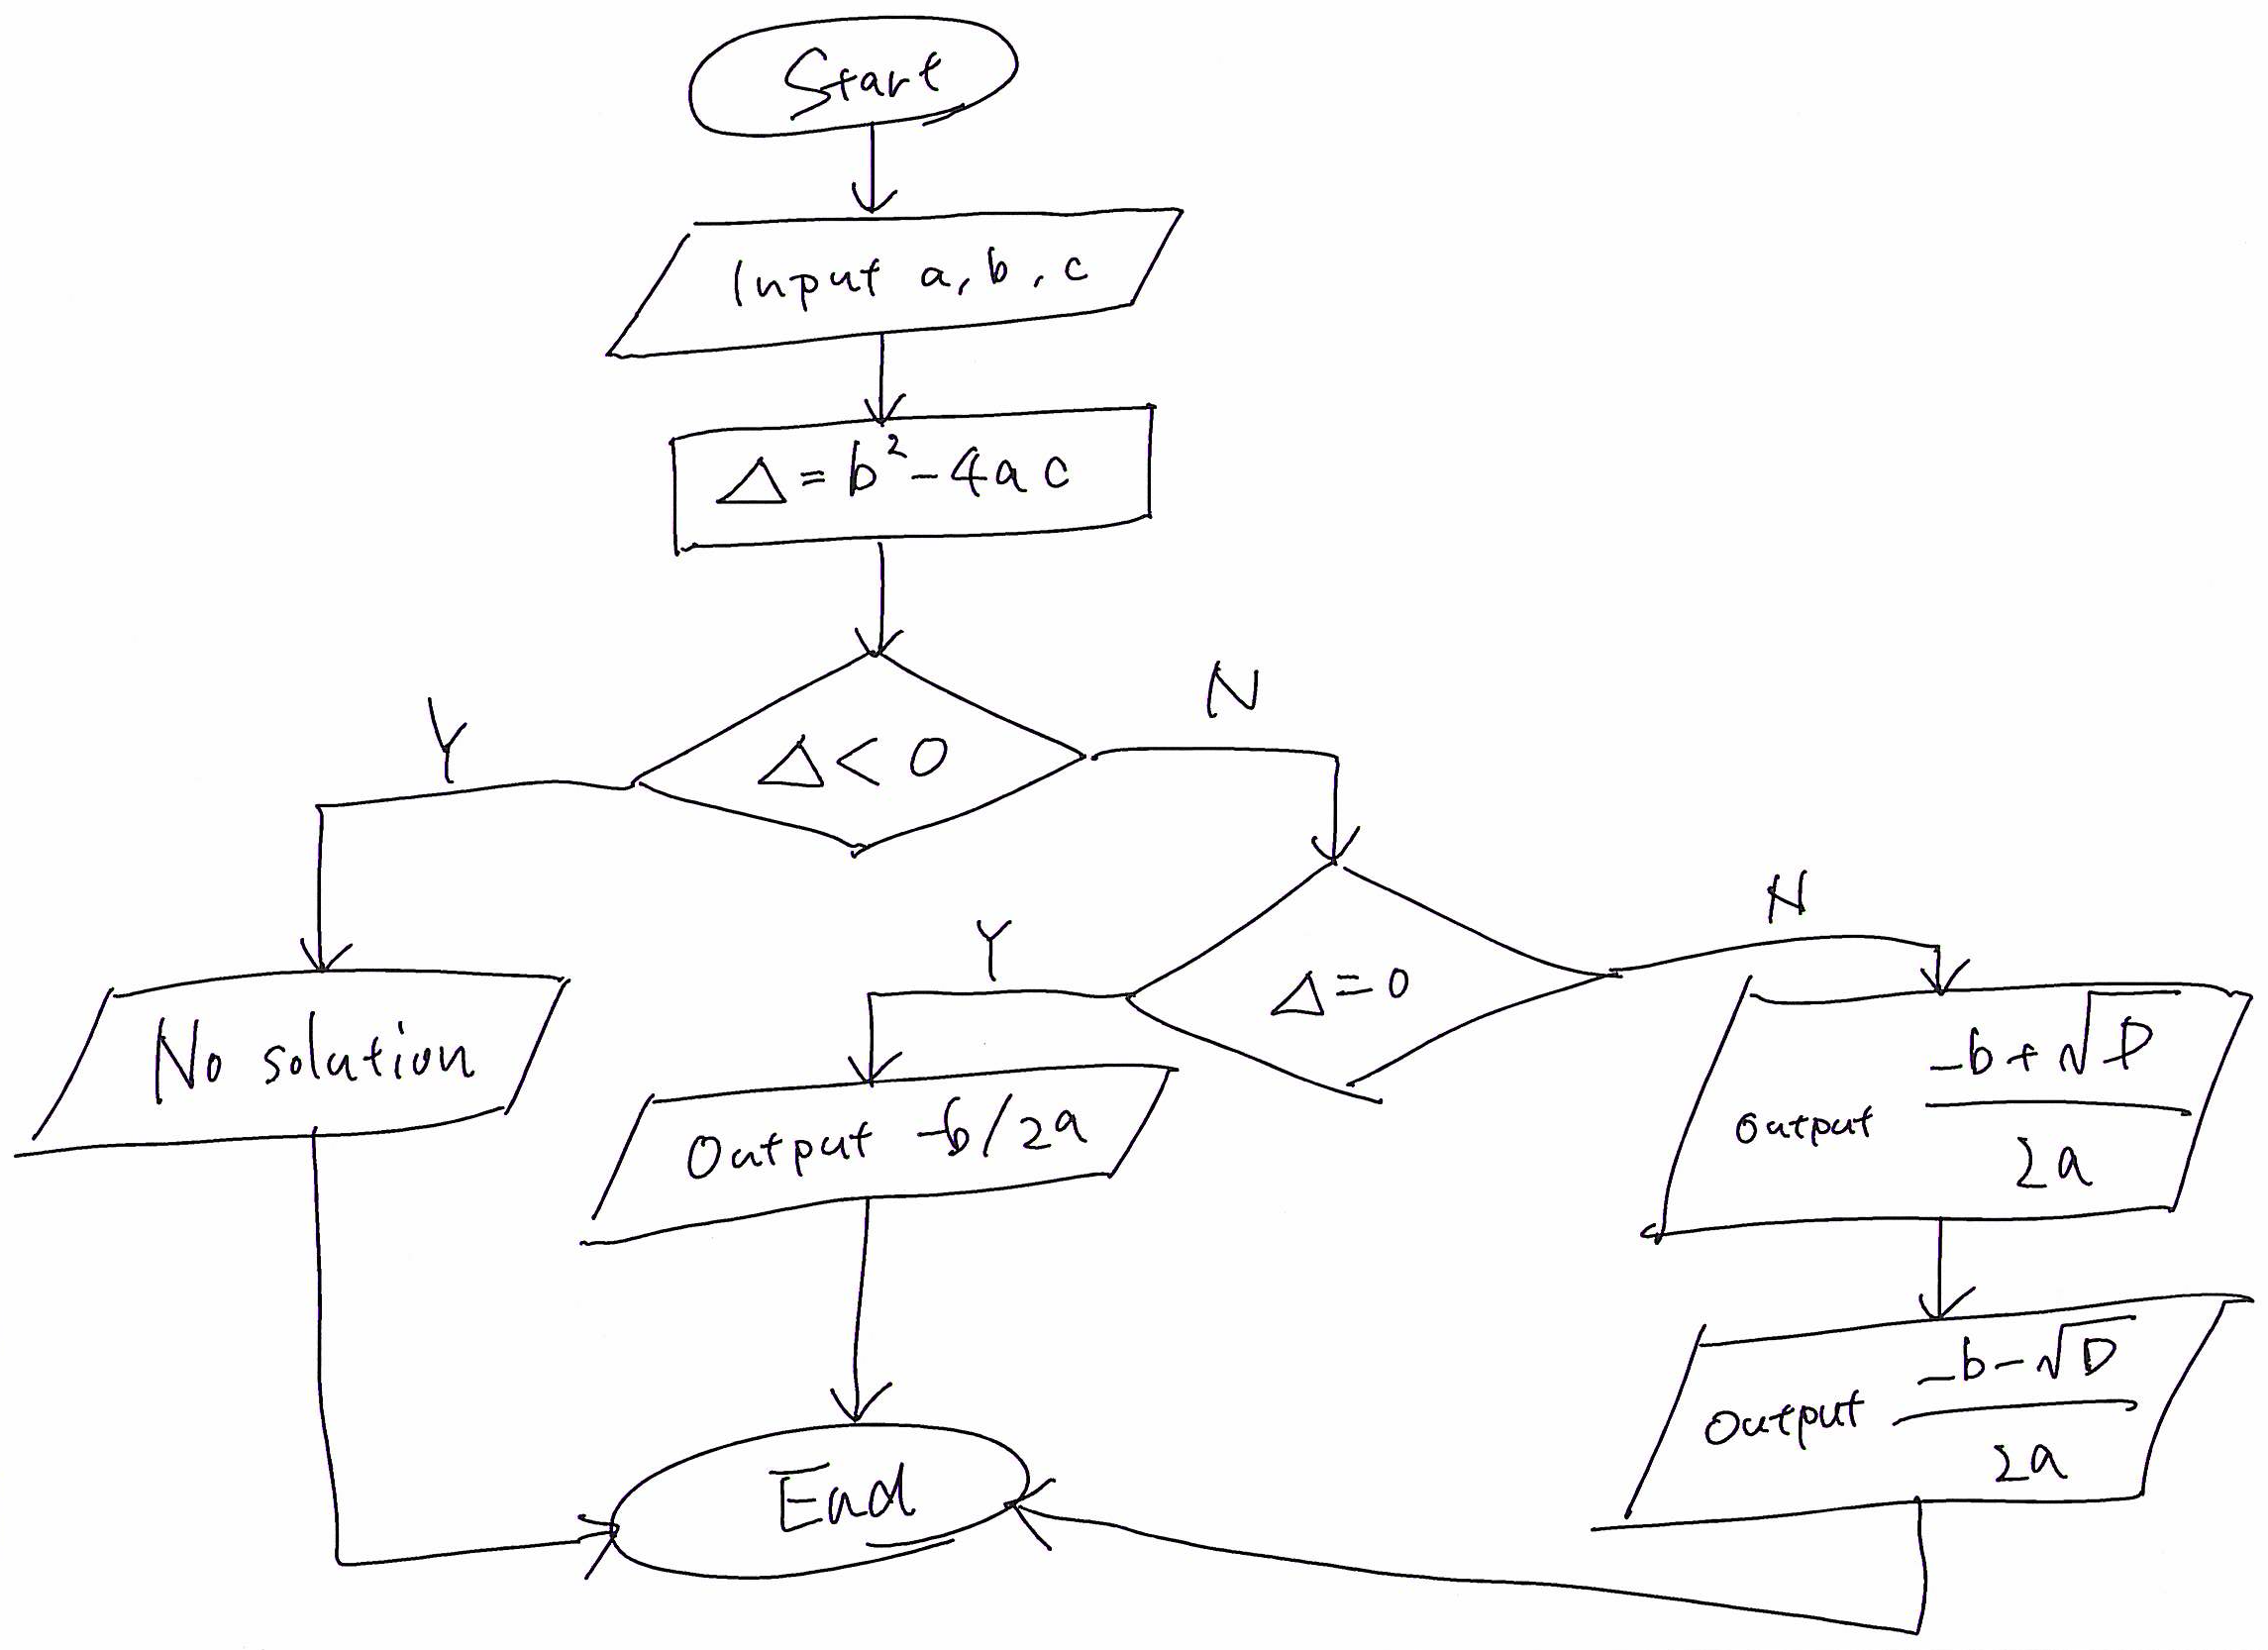 Start
Input a, b, c
Δ = b² - 4ac
Δ < 0
Y
N
Δ = 0
Y
N
No solution
Output -b/2a
Output (-b + √D) / 2a
Output (-b - √D) / 2a
End